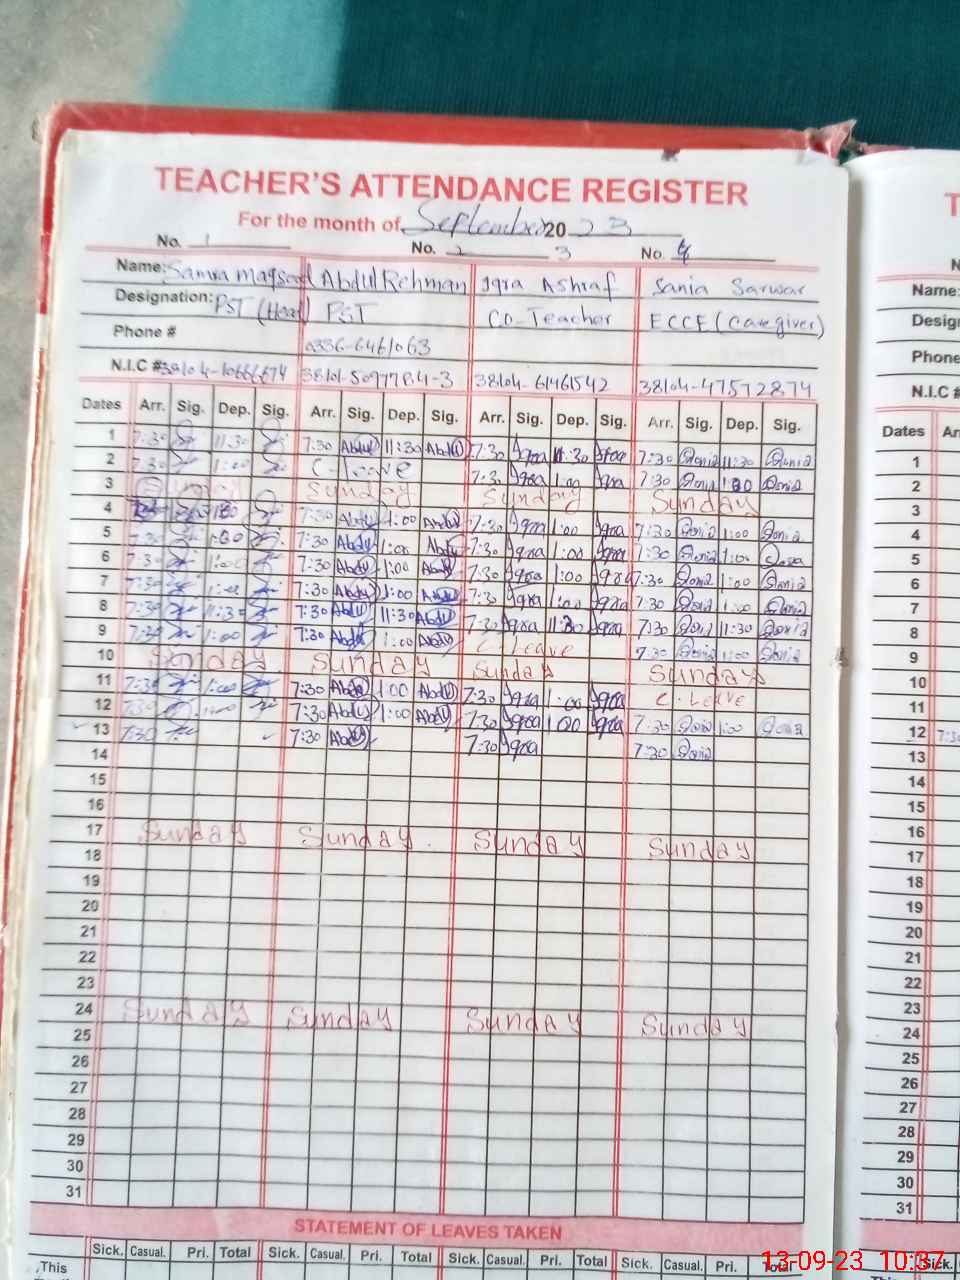 TEACHER'S ATTENDANCE REGISTER
For the month of September 20 23
No. 1 No. 2 3 No. 4
Name: Samra Maqsood Abdul Rehman Iqra Ashraf Sania Sarwar
Designation: PST (Head) PST CO-Teacher ECCE (Caregiver)
Phone # 0336-6461063
N.I.C # 38104-10666674 38101-5097784-3 38104-61461542 38104-47572874
Dates Arr. Sig. Dep. Sig. Arr. Sig. Dep. Sig. Arr. Sig. Dep. Sig. Arr. Sig. Dep. Sig.
1 7:30 11:30 7:30 Abdul 11:30 Abdul 7:30 Iqra 11:30 Iqra 7:30 Sonia 11:30 Sonia
2 7:30 1:00 C-leave 7:30 Iqra 1:00 Iqra 7:30 Sonia 1:00 Sonia
3 Sunday Sunday Sunday Sunday
4 7:30 1:00 7:30 Abdul 1:00 Abdul 7:30 Iqra 1:00 Iqra 7:30 Sonia 1:00 Sonia
5 7:30 1:00 7:30 Abdul 1:00 Abdul 7:30 Iqra 1:00 Iqra 7:30 Sonia 1:00 Sonia
6 7:30 1:00 7:30 Abdul 1:00 Abdul 7:30 Iqra 1:00 Iqra 7:30 Sonia 1:00 Sonia
7 7:30 1:00 7:30 Abdul 1:00 Abdul 7:30 Iqra 1:00 Iqra 7:30 Sonia 1:00 Sonia
8 7:30 11:30 7:30 Abdul 11:30 Abdul 7:30 Iqra 11:30 Iqra 7:30 Sonia 11:30 Sonia
9 7:30 1:00 7:30 Abdul 1:00 Abdul C-Leave 7:30 Sonia 1:00 Sonia
10 Sunday Sunday Sunday Sunday
11 7:30 1:00 7:30 Abdul 1:00 Abdul 7:30 Iqra 1:00 Iqra C-Leave
12 7:30 1:00 7:30 Abdul 1:00 Abdul 7:30 Iqra 1:00 Iqra 7:30 Sonia 1:00 Sonia
13 7:30 7:30 Abdul 7:30 Iqra 7:30 Sonia
14
15
16
17 Sunday Sunday Sunday Sunday
18
19
20
21
22
23
24 Sunday Sunday Sunday Sunday
25
26
27
28
29
30
31
STATEMENT OF LEAVES TAKEN
Sick. Casual. Pri. Total Sick. Casual. Pri. Total Sick. Casual. Pri. Total Sick. Casual. Pri. Total
This
T
N
Name:
Desig
Phone
N.I.C #
Dates Ar
1
2
3
4
5
6
7
8
9
10
11
12 7:30
13
14
15
16
17
18
19
20
21
22
23
24
25
26
27
28
29
30
31
Sick.
13-09-23 10:37